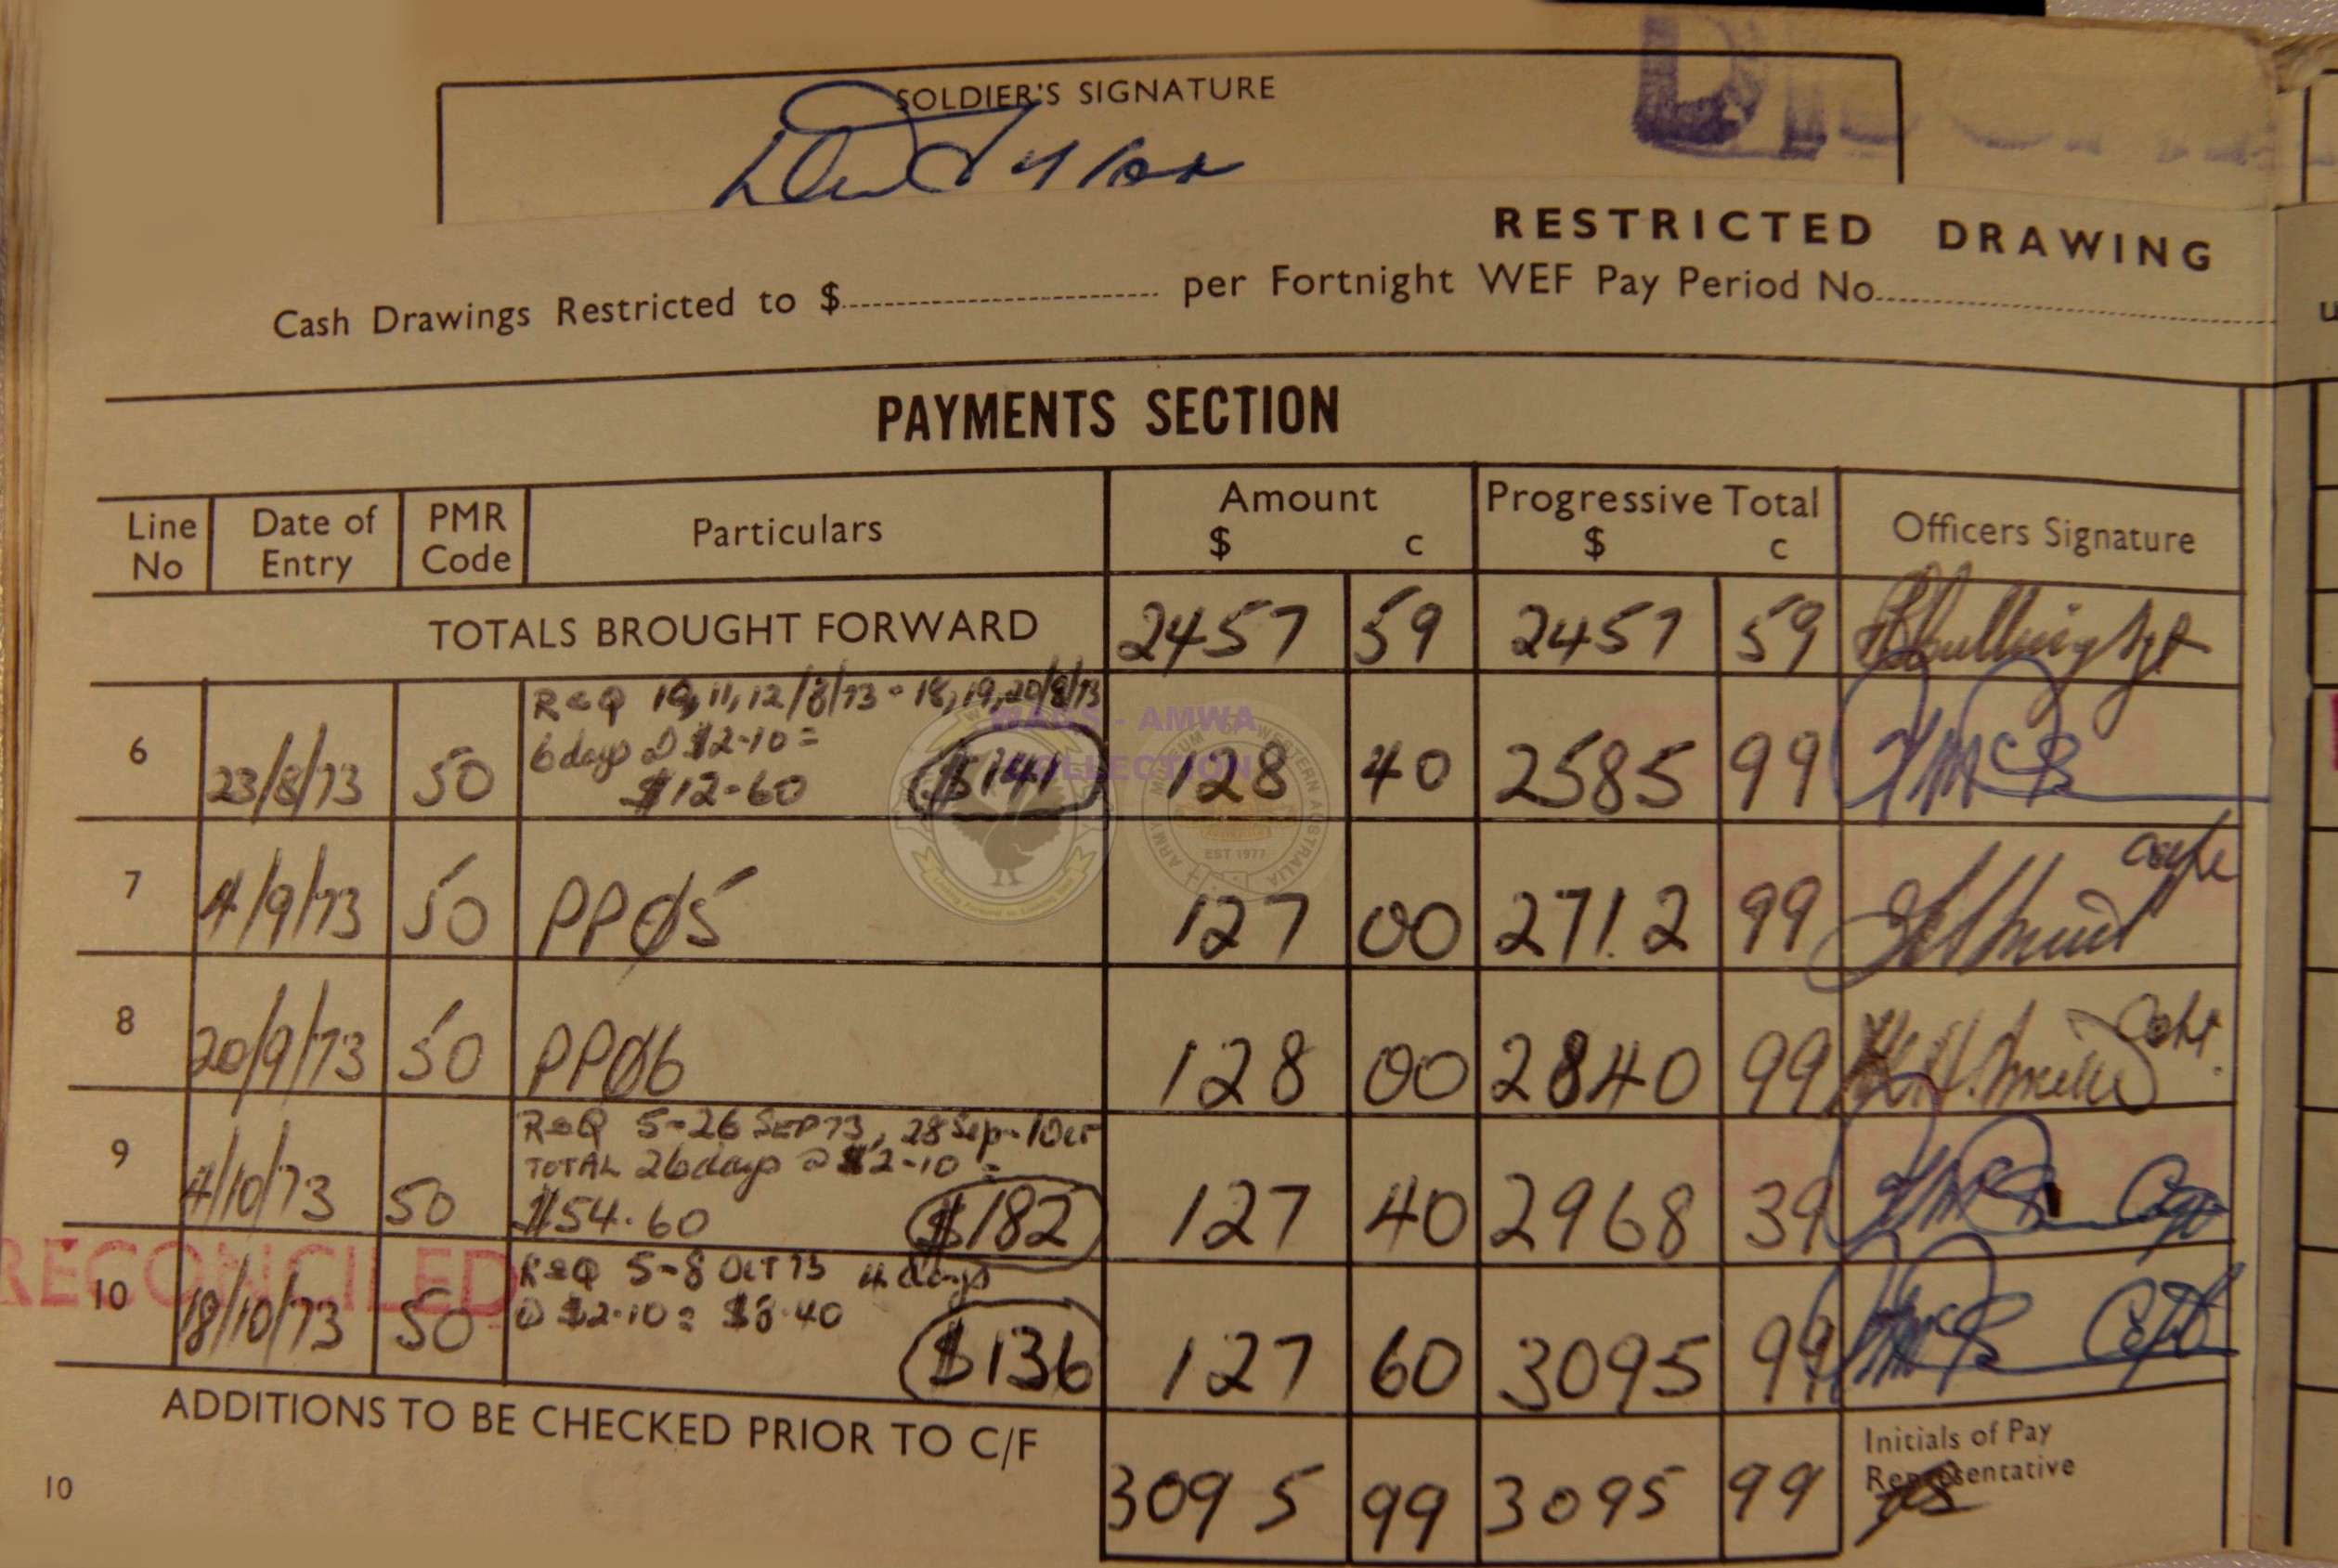 SOLDIER'S SIGNATURE
RESTRICTED DRAWING
Cash Drawings Restricted to $ per Fortnight WEF Pay Period No
PAYMENTS SECTION
Line No Date of Entry PMR Code Particulars Amount $ c Progressive Total $ c Officers Signature
TOTALS BROUGHT FORWARD 2457 59 2457 59 Sgt
R&Q 10, 11, 12/8/73 - 18, 19, 20/8/73
6 days @ $2-10 =
$12-60
6 23/8/73 50 $141 128 40 2585 99
WAGS - AMWA
COLLECTION
ARMY MUSEUM OF WESTERN AUSTRALIA
EST 1977
7 4/9/73 50 PPØ5 127 00 2712 99
8 20/9/73 50 PPØ6 128 00 2840 99
R&Q 5-26 SEP 73, 28 Sep - 1 Oct
TOTAL 26 days @ $2-10 =
9 4/10/73 50 $54.60 $182 127 40 2968 39
RECONCILED
R&Q 5-8 OCT 73 4 days
@ $2.10 = $8.40
10 18/10/73 50 $136 127 60 3095 99
ADDITIONS TO BE CHECKED PRIOR TO C/F 3095 99 3095 99
Initials of Pay
Representative
10